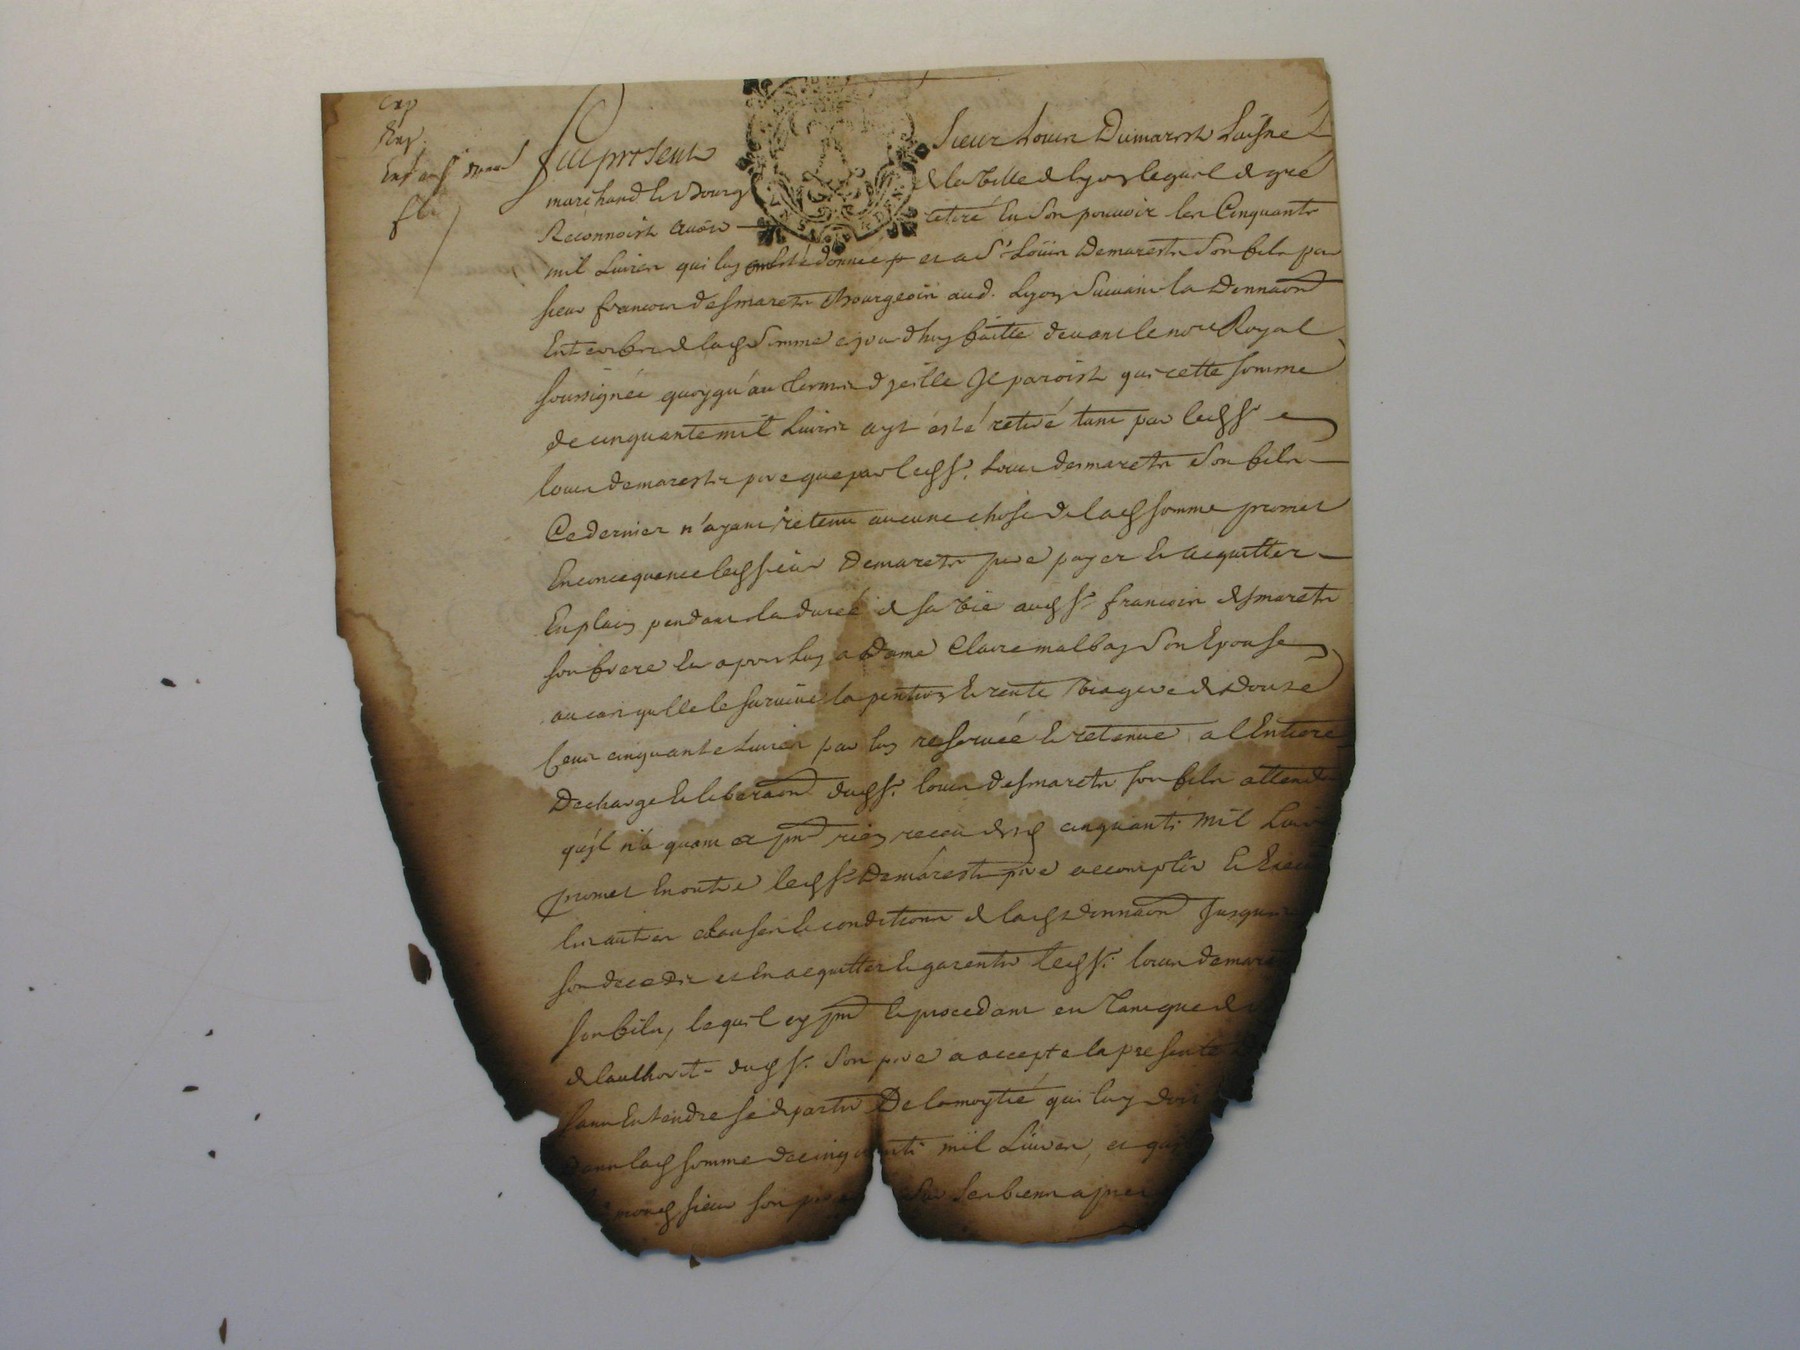 Exp
Fut present Sieur Louis Dumarest Laisné
marchand et Bourg de la Ville de Lyon lequel de gré
Reconnoist avoir retiré en son pouvoir les Cinquante
mil Livres qui luy donnée et a Sr Loüis Demarests son fils par
sieur francois desmarets Bourgeois aud. Lyon suivant la Donnaon
Entre vifs de lad somme ejourdhuy faitte devant le nore Royal
soussignée quoyqu'au termes d'jcelle Jl paroist que cette somme
de cinquante mil Livres ayt esté retiré tant par led Sr
louis demarests pere que par led Sr. Louis desmarets son fils
Ce dernier n'ayant retenu aucune chose de lad somme promet
En consequence led sieur Demarets pere payer et acquitter
En plain pendant la durée de sa vie aud Sr francois desmarets
son frere et apres luy a Dame Claire malbay son Epouse
au cas qu'elle le survive la pention et rente viagere de Douze
Cent cinquante Livres par luy reservée et retenue a l'Entiere
Decharge et liberaon dud Sr. louis desmarets son fils attendu
qu'jl n'a quant a pnt rien receu desd cinquante mil Livres
promet En outre led Sr Demarests pere accomplir et
les autres clauses et conditions de lad donnaon Jusques
son decedz et en acquitter et garentir led Sr. louis
son fils, lequel cy pnt et procedant en tant que de
de lauthorité dud Sr. son pere a accepté la presente
sans Entendre se departir De la moytié qui luy doit
dans lad somme de cinquante mil Livres, et que
sieur son pere sur ses biens apres